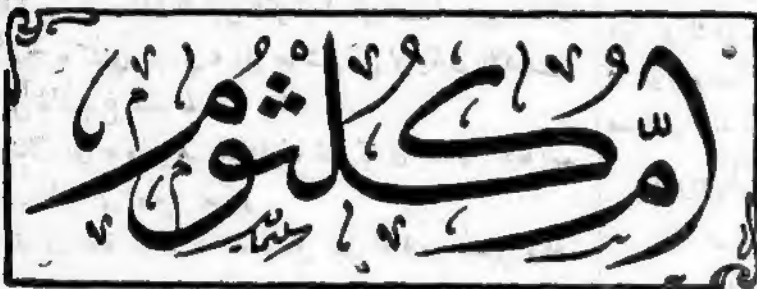 أمّ كلثوم